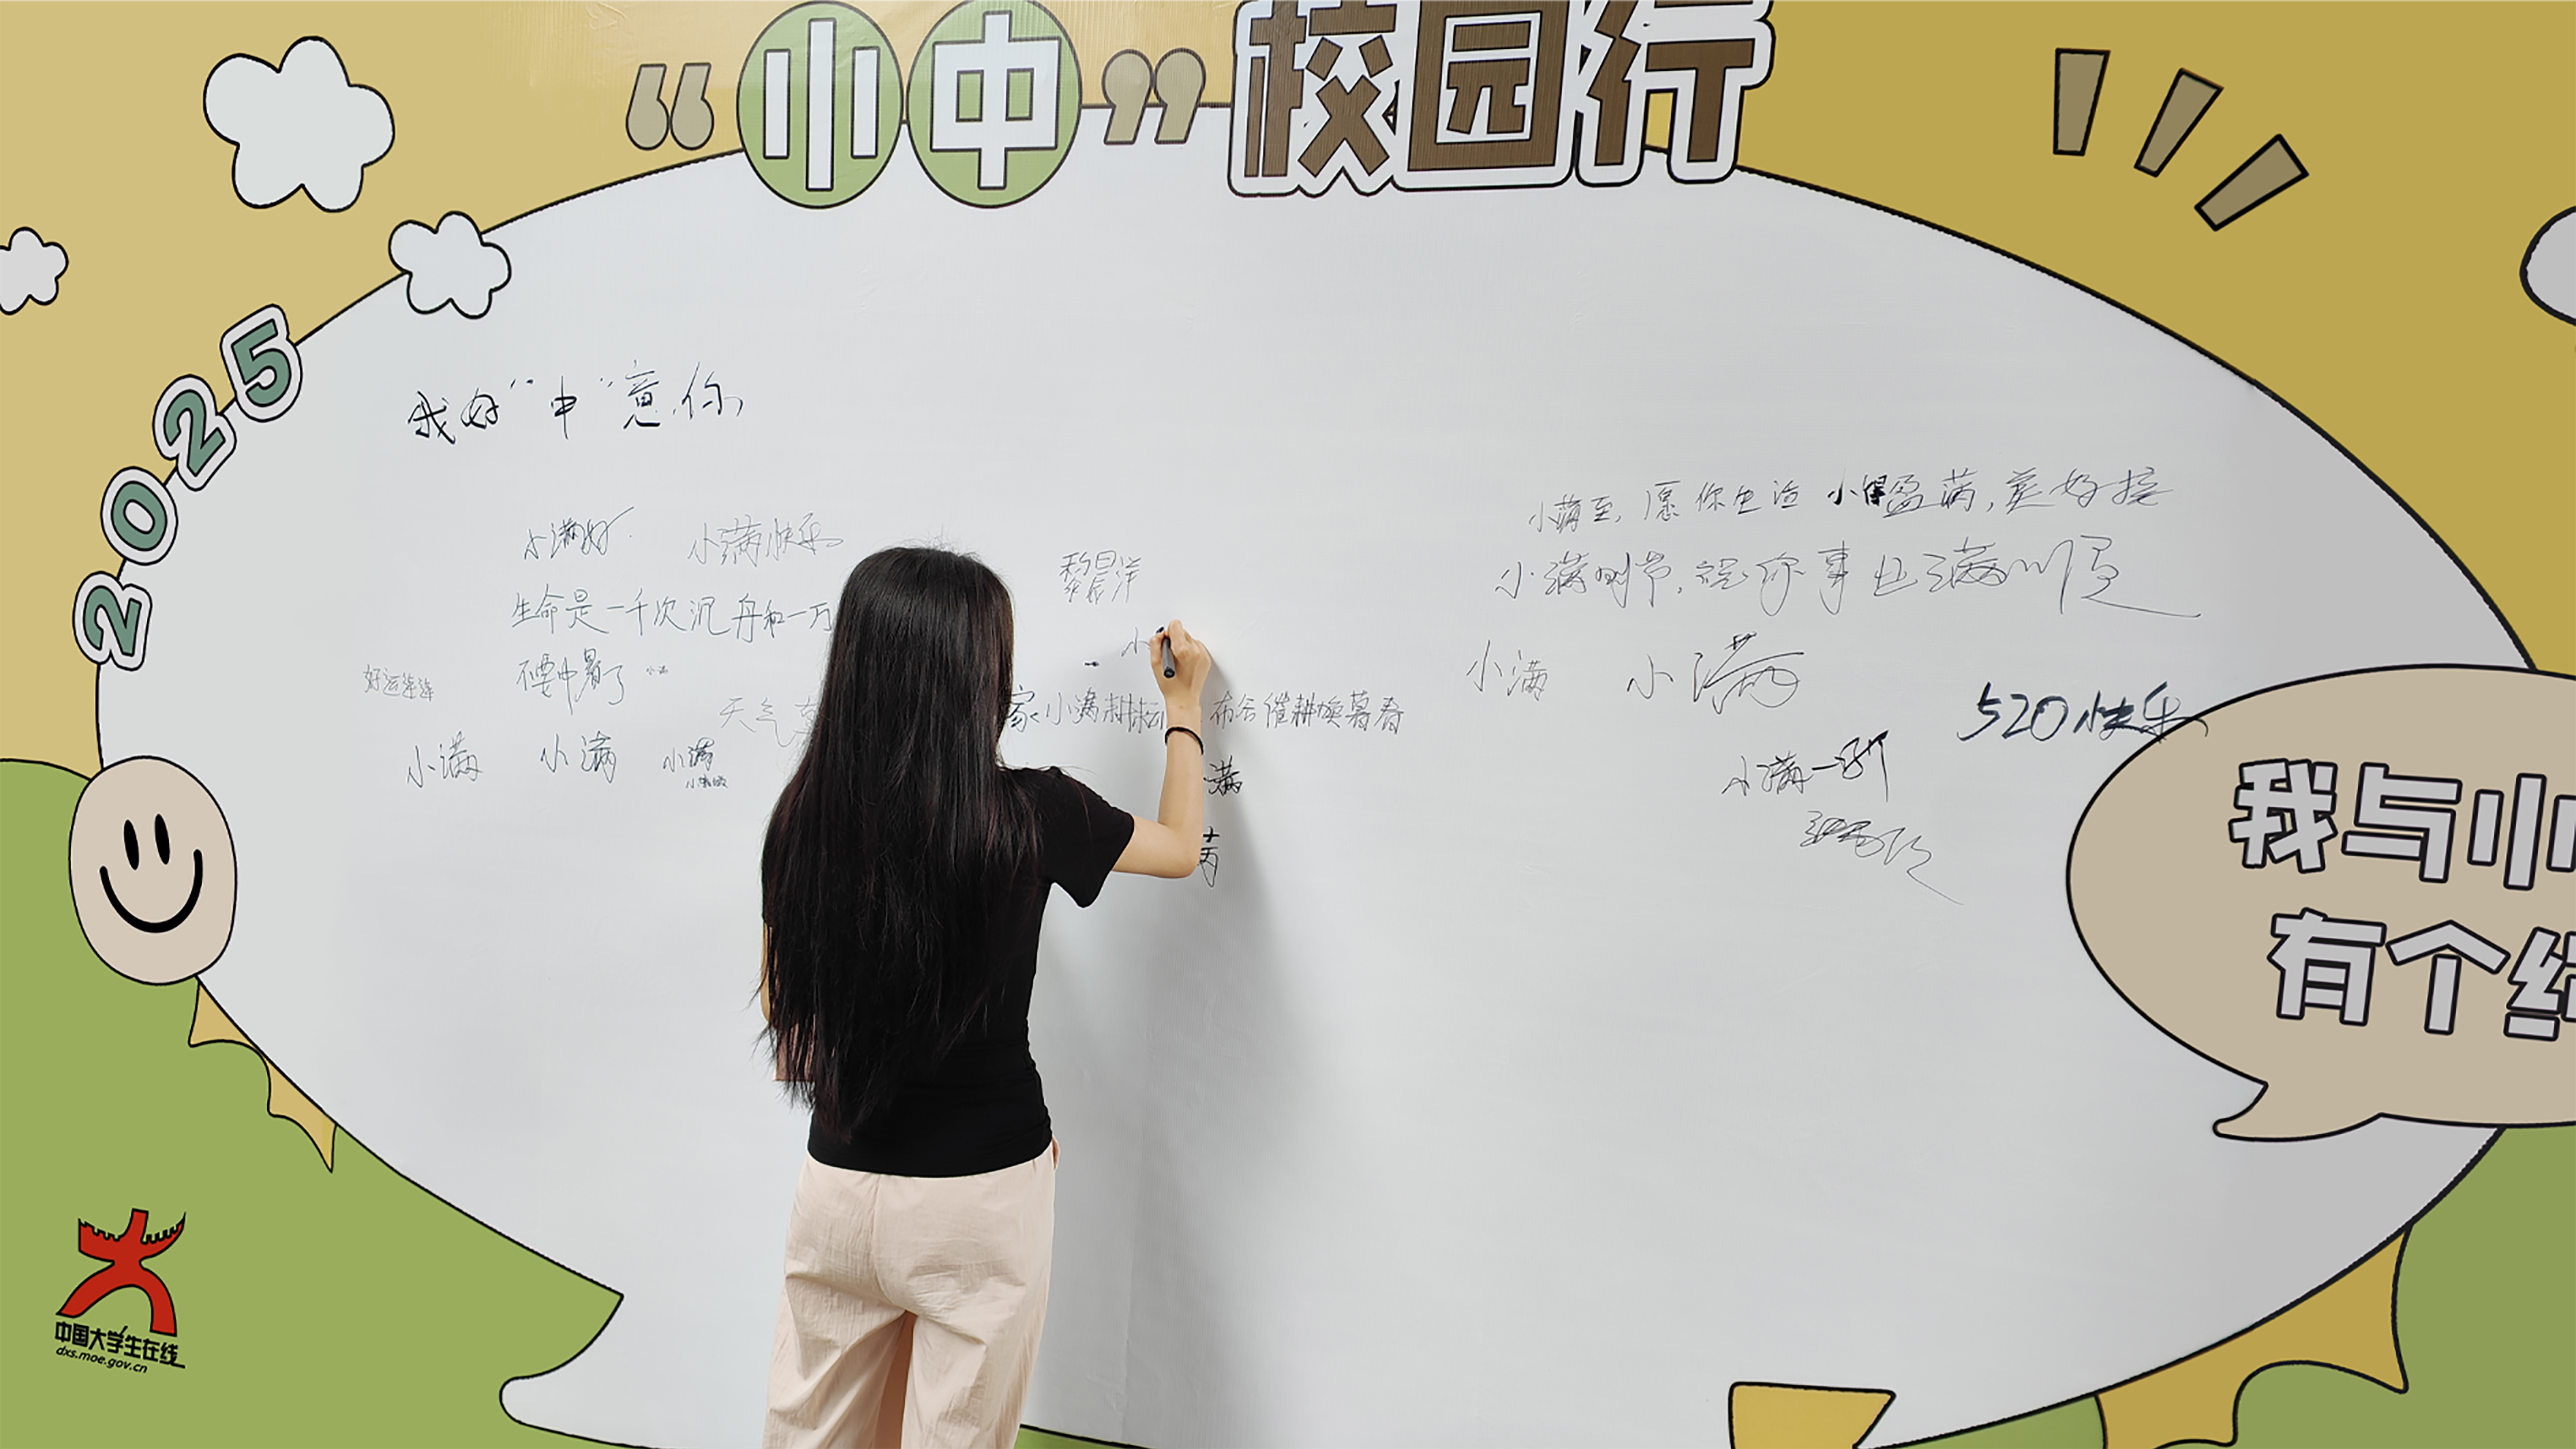 “小中”校园行
2025
我好“中”意你
小满好 小满快乐
生命是一千次沉舟和一万
好运连连 不要中暑了
天气
家小满耕耘 布谷催耕唤暮春
小满 小满 小满
小满
满
小满至,愿你生活小得盈满,美好接
小满时节,祝你事业满顺
小满 小满
520快乐
小满一
我与小
有个约
中国大学生在线
dxs.moe.gov.cn